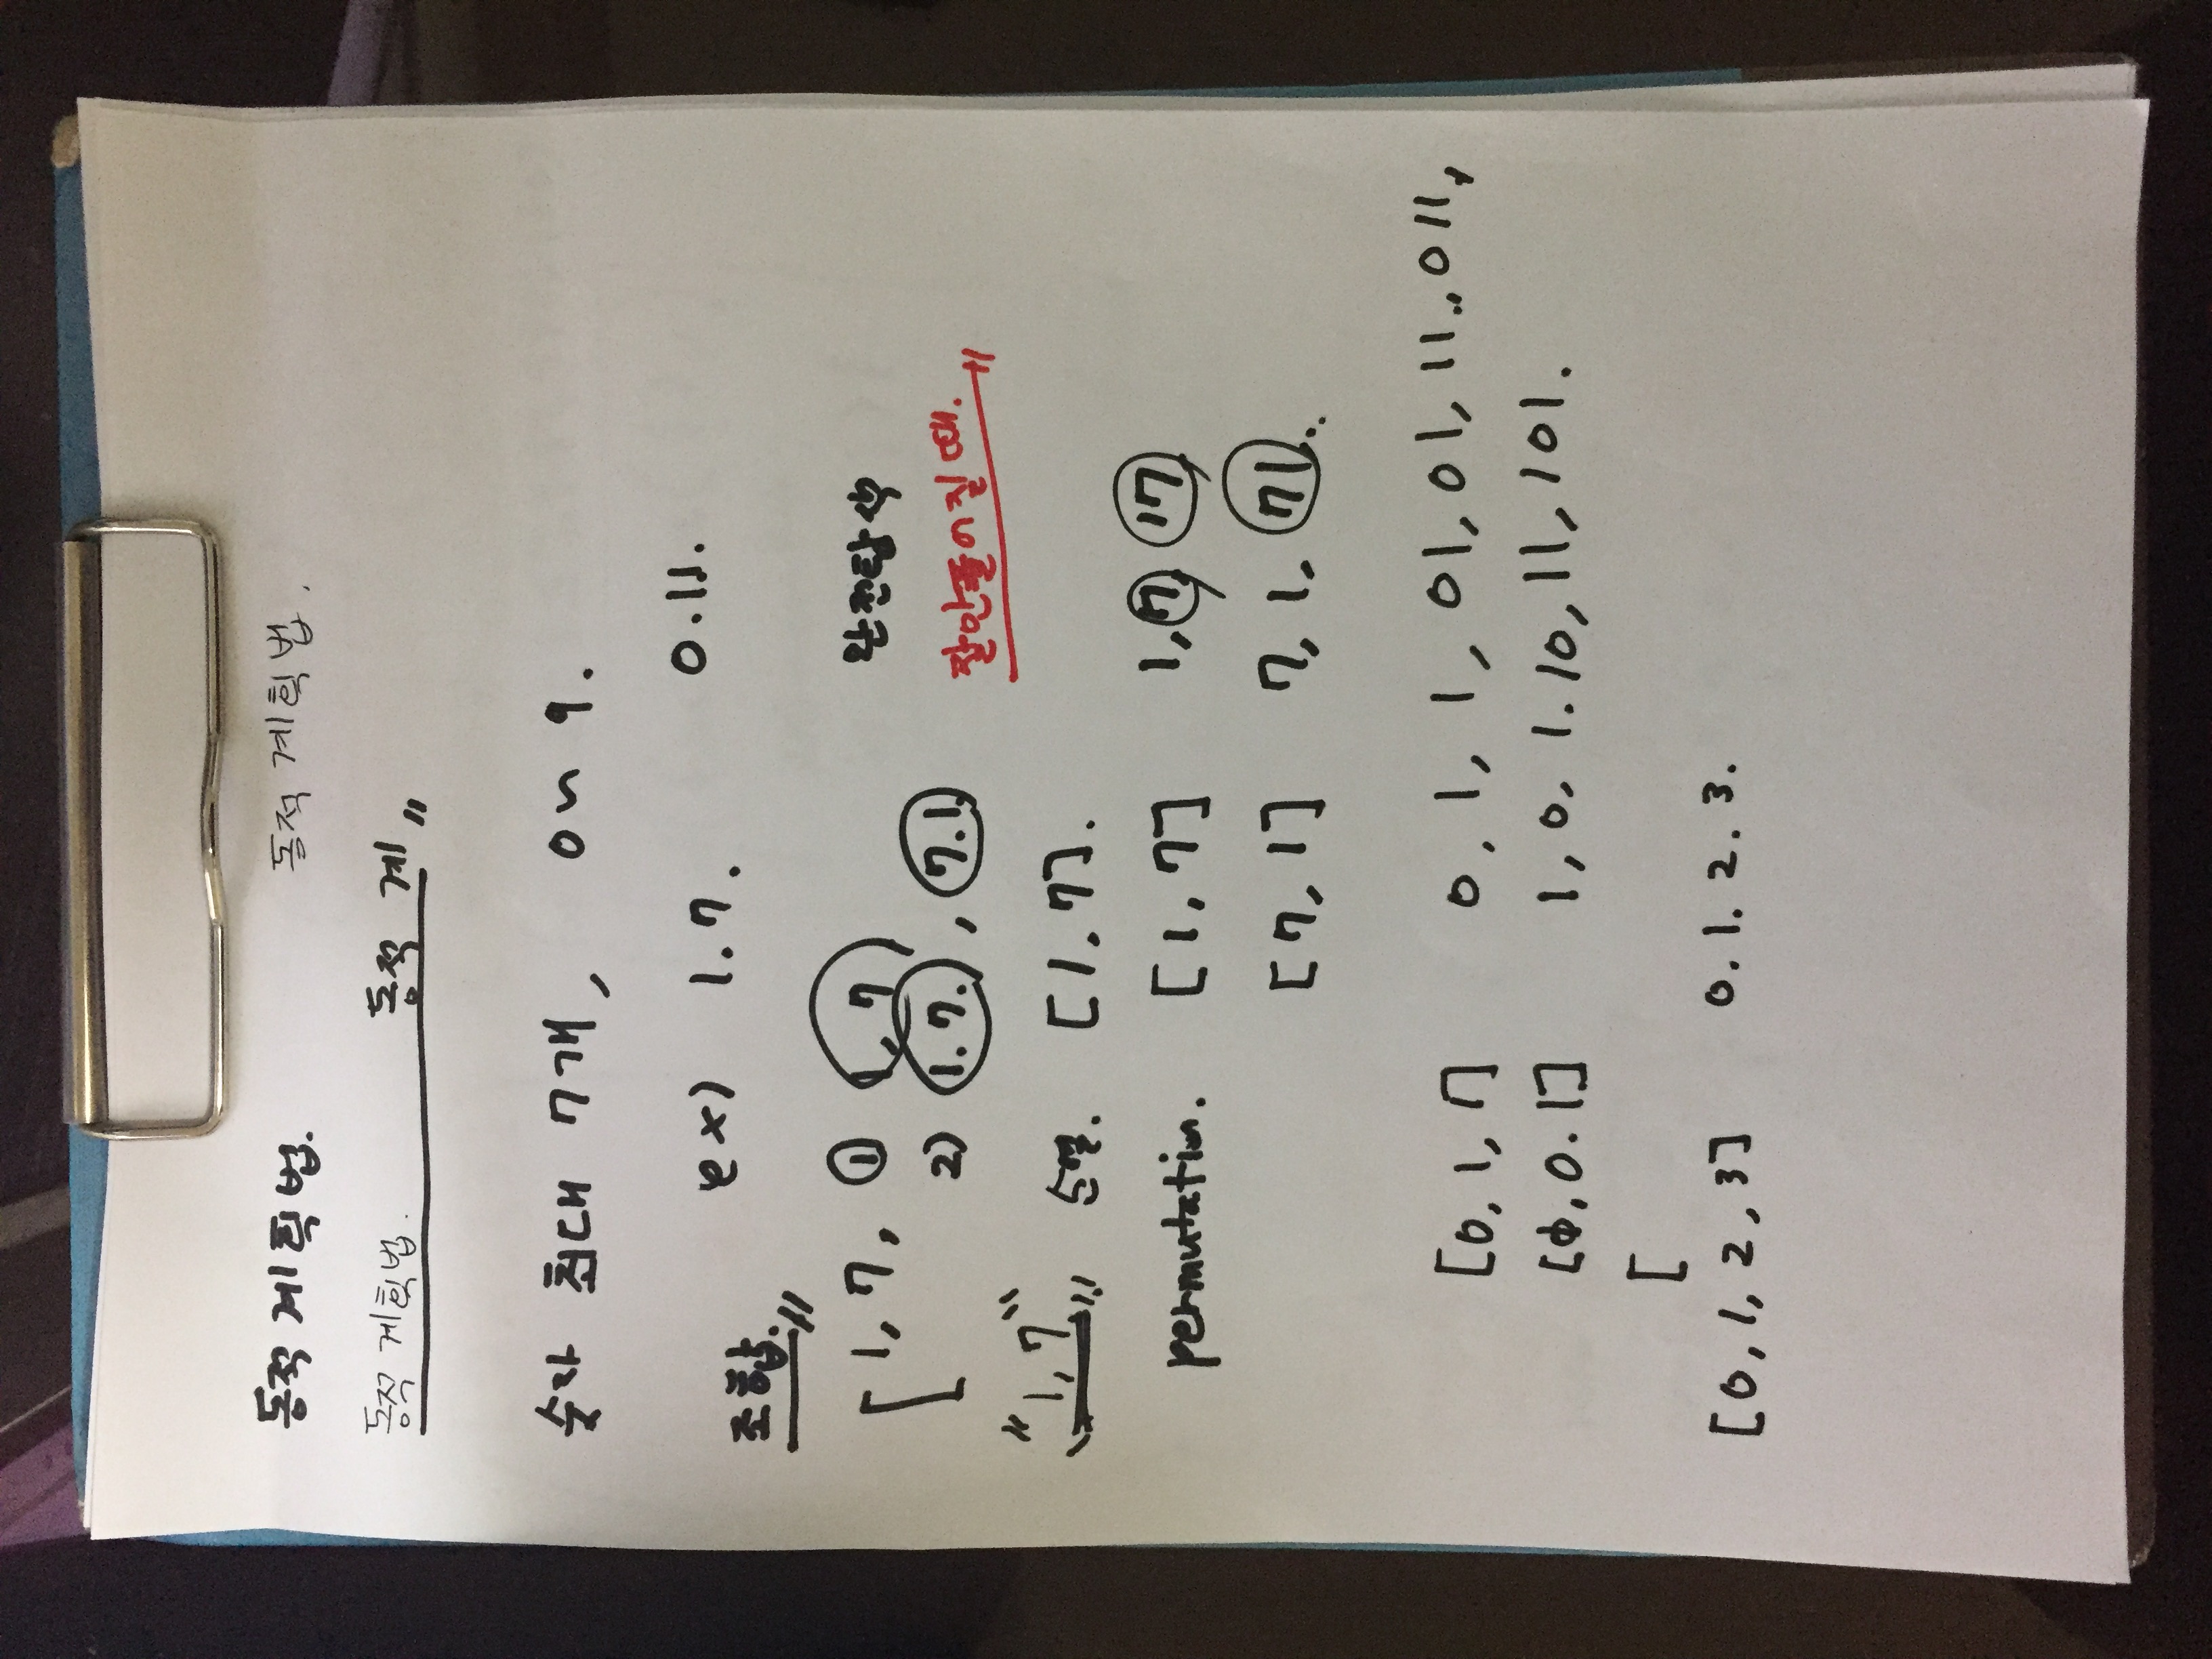 동적 계획법. 동적 계획법.
동적 계획법. 동적 계〃
숫자 최대 7개, 0~9.
ex) 1.7. 0.11.
조합.〃
[1, 7, ① 1, 7 완전탐색
2) 1.7. , 7.1. 잘안풀어질때.〃
"1,7"〃 순열. [1.7].
permutation. [1, 7] 1, 7, 17
[7, 1] 7, 1, 71.
[0, 1, 1] 0, 1, 1, 01, 01, 11., 011,
0.1] 1, 0, 1.10, 11, 101.
[
[0, 1, 2, 3] 0. 1. 2. 3.